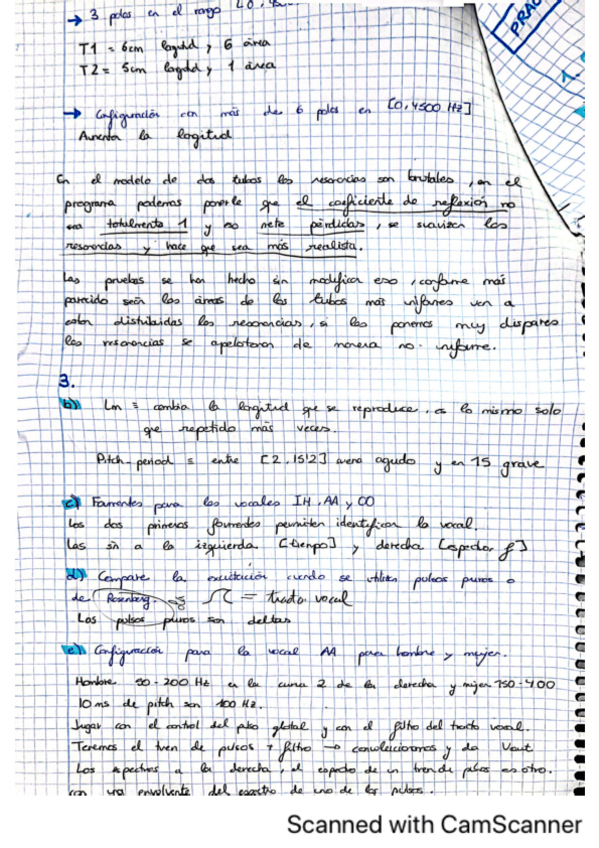 → 3 polos en el rango
PRAC
T1 = 6cm logitud y 6 área
T2 = 5cm logitud y 1 área
1.
→ Configuración con más de 6 polos en [0, 4500 Hz]
Aumenta la logitud
En el modelo de dos tubos las resonancias son brutales, en el
programa podemos ponerle que el coeficiente de reflexión no
sea totalmente 1 y eso mete pérdidas, se suavizan las
resonancias y hace que sea más realista.
Las pruebas se han hecho sin modificar eso, conforme más
parecido sean las áreas de los tubos más uniformes van a
estar distribuidas las resonancias, si las ponemos muy dispares
las resonancias se apelotonan de manera no uniforme.
3.
b) Lm = cambia la longitud que se reproduce, es lo mismo solo
que repetido más veces.
Pitch-period = entre [2,15'2] suena agudo y en 15 grave
c) Formantes para las vocales IH, AA y OO
Los dos primeros formantes permiten identificar la vocal.
Las a la izquierda [tiempo] y derecha [espectro f]
d) Compare la excitación cuando se utilizan pulsos puros o
de Rosenberg = tracto vocal
Los pulsos puros son deltas
e) Configuración para la vocal AA para hombre y mujer.
Hombre 50-200 Hz en la curva 2 de la derecha y mujer 150-400
10 ms de pitch son 100 Hz.
Jugar con el control del pulso glotal y con el filtro del tracto vocal.
Tenemos el tren de pulsos + filtro → convolucionamos y da Vout
Los espectros a la derecha, el espectro de un tren de pulsos es otro.
con una envolvente del espectro de uno de los pulsos.
Scanned with CamScanner